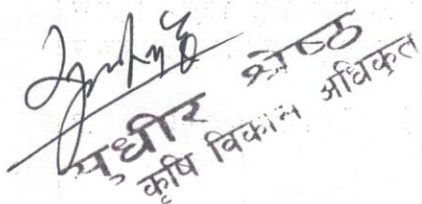 सुधीर श्रेष्ठ
कृषि विकास अधिकृत